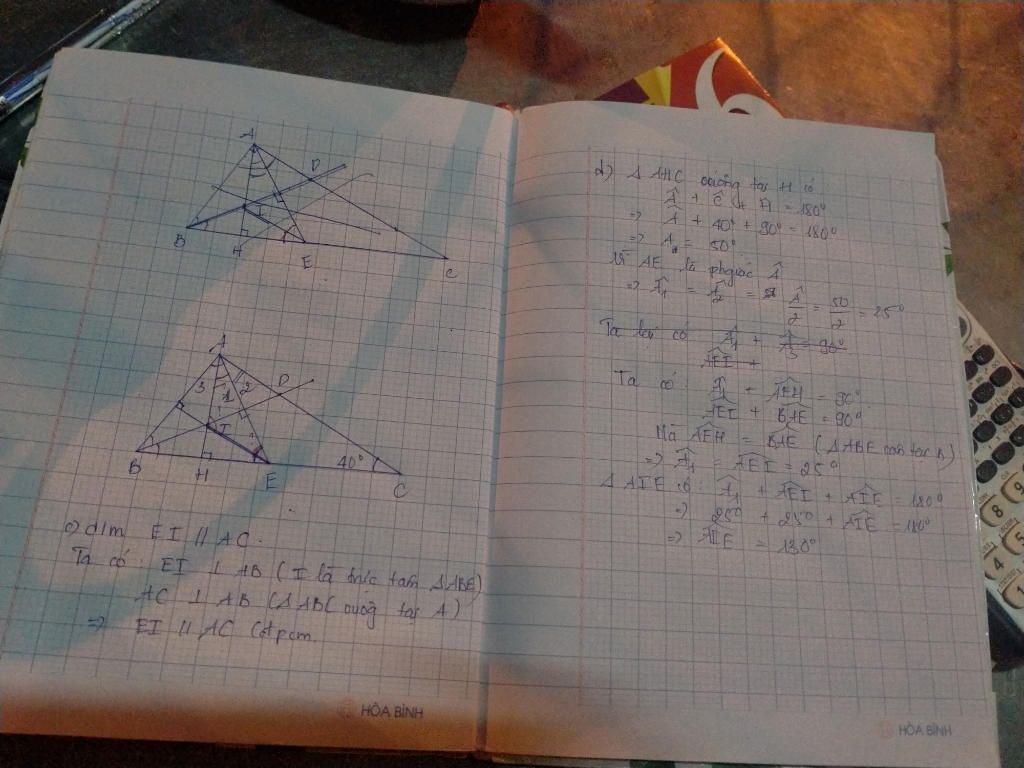 A
D
I
B
H
E
C
A
3 1 2
D
I
B
H
E
40°
C
c) đ/m EI // AC.
Ta có: EI ⊥ AB (I là trực tâm ΔABE)
AC ⊥ AB (ΔABC vuông tại A)
=> EI // AC (đpcm
HÒA BÌNH
d) Δ AHC vuông tại H có
Â + Ĉ + Ĥ = 180°
=> Â + 40° + 90° = 180°
=> A = 50°
Vì AE là phgiác Â
=> Â1 = Â2 = Â/2 = 50/2 = 25°
Ta lại có Â1 + Â3 = 90°
AEI +
Ta có Â1 + AEH = 90°
AEI + BAE = 90°
Mà AEH = BAE (ΔABE cân tại B)
=> Â1 = AEI = 25°
Δ AIE có: Â1 + AEI + AIE = 180°
=> 25° + 25° + AIE = 180°
=> AIE = 130°
HÒA BÌNH
8
9
4
5
1